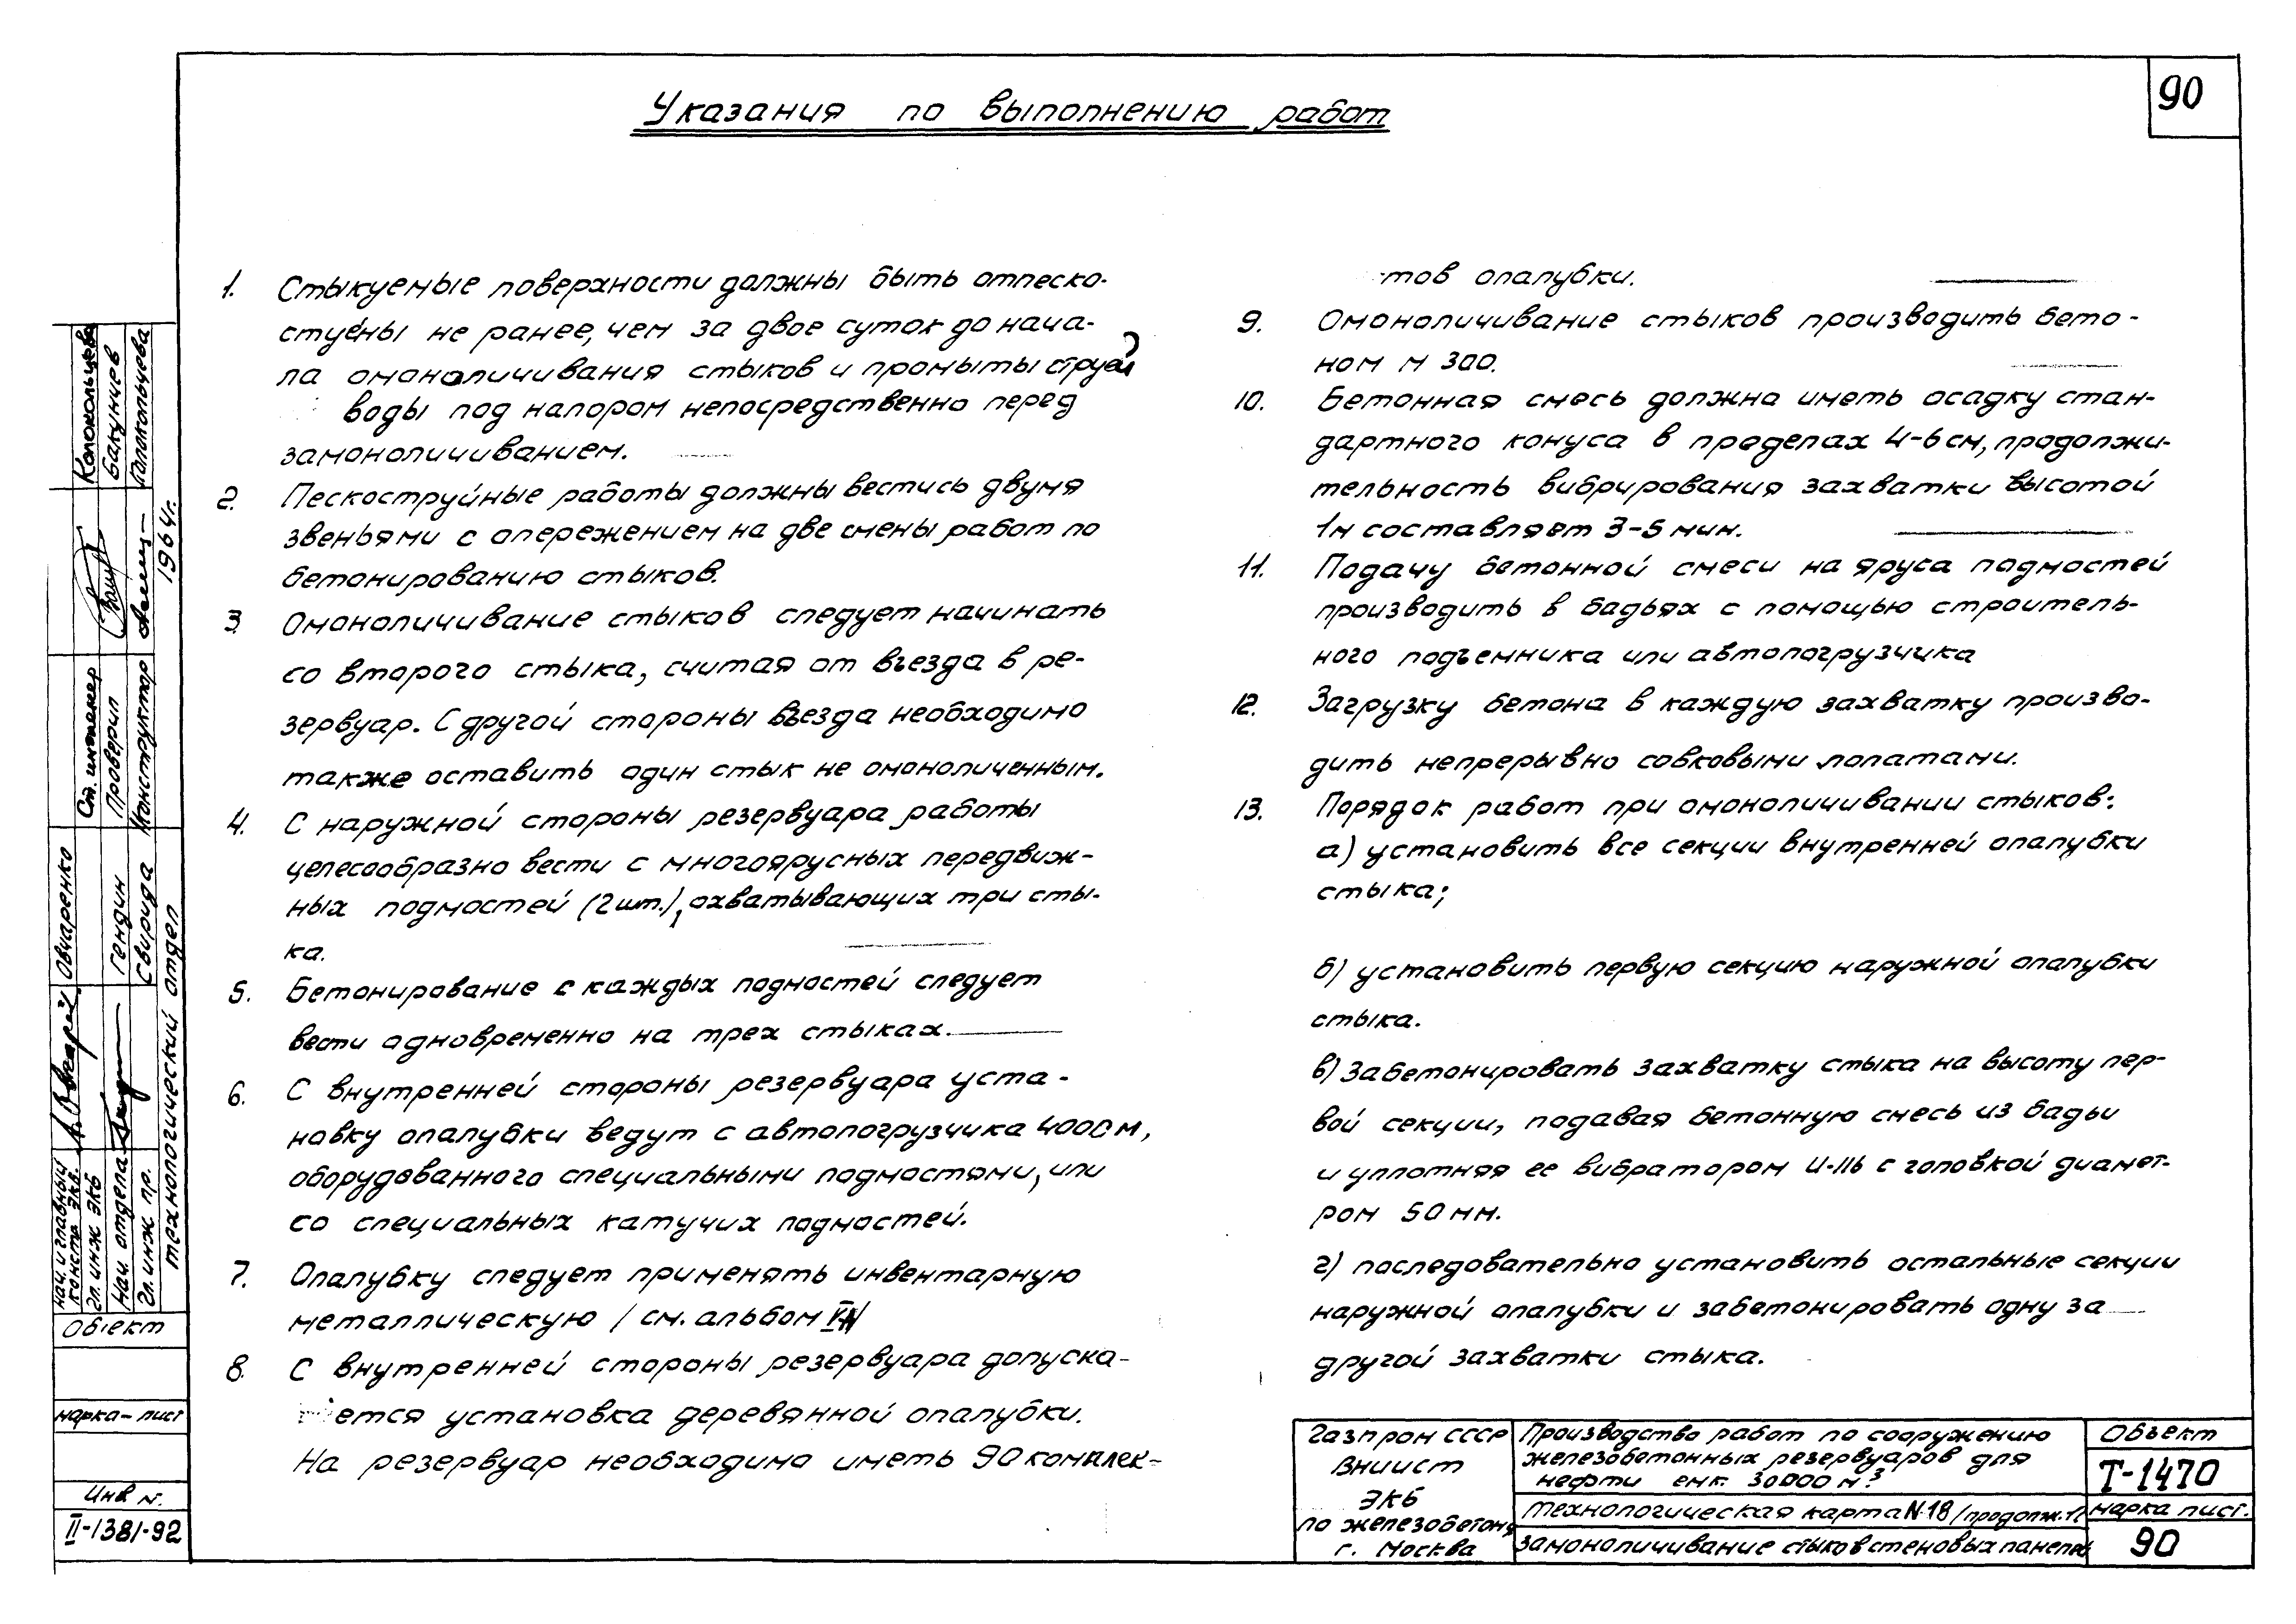 90
Указания по выполнению работ
1. Стыкуемые поверхности должны быть отпеско-
струены не ранее, чем за двое суток до нача-
ла омоноличивания стыков и промыты струей
воды под напором непосредственно перед
замоноличиванием.
2. Пескоструйные работы должны вестись двумя
звеньями с опережением на две смены работ по
бетонированию стыков.
3. Омоноличивание стыков следует начинать
со второго стыка, считая от въезда в ре-
зервуар. С другой стороны въезда необходимо
также оставить один стык не омоноличенным.
4. С наружной стороны резервуара работы
целесообразно вести с многоярусных передвиж-
ных подмостей (2 шт.), охватывающих три сты-
ка.
5. Бетонирование с каждых подмостей следует
вести одновременно на трех стыках.
6. С внутренней стороны резервуара уста-
новку опалубки ведут с автопогрузчика 4000 м,
оборудованного специальными подмостями, или
со специальных катучих подмостей.
7. Опалубку следует применять инвентарную
металлическую / см. альбом
8. С внутренней стороны резервуара допуска-
ется установка деревянной опалубки.
На резервуар необходимо иметь 90 комплек-
тов опалубки.
9. Омоноличивание стыков производить бето-
ном М 300.
10. Бетонная смесь должна иметь осадку стан-
дартного конуса в пределах 4-6 см, продолжи-
тельность вибрирования захватки высотой
1м составляет 3-5 мин.
11. Подачу бетонной смеси на яруса подмостей
производить в бадьях с помощью строитель-
ного подъемника или автопогрузчика
12. Загрузку бетона в каждую захватку произво-
дить непрерывно совковыми лопатами.
13. Порядок работ при омоноличивании стыков:
а) установить все секции внутренней опалубки
стыка;
б) установить первую секцию наружной опалубки
стыка.
в) Забетонировать захватку стыка на высоту пер-
вой секции, подавая бетонную смесь из бадьи
и уплотняя ее вибратором И-116 с головкой диамет-
ром 50 мм.
г) последовательно установить остальные секции
наружной опалубки и забетонировать одну за
другой захватки стыка.
Газпром СССР
ВНИИСТ
ЭКБ
по железобетону
г. Москва
Производство работ по сооружению
железобетонных резервуаров для
нефти емк. 30000 м³
Технологическая карта N18 /продолж. 1/
Замоноличивание стыков стеновых панелей
Объект
Т-1470
марка лист.
90
Нач. и главный
констр. ЭКБ.
Овчаренко
Гл. инж ЭКБ
Нач. отдела
Гендин
Гл. инж. пр.
Свирида
Ст. инженер
Колокольцева
Проверил
Бакунчев
Конструктор
Колокольцева
технологический отдел
1964г.
Объект
марка-лист
Инв N.
II-1381-92